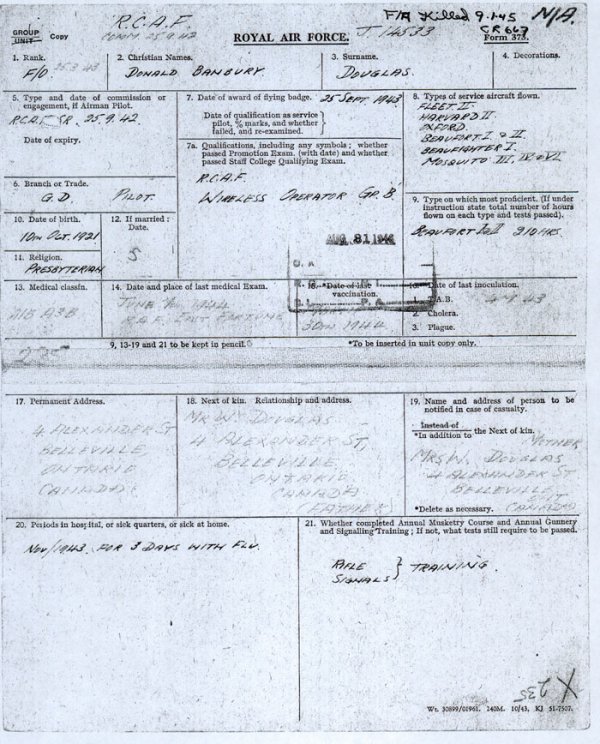 R.C.A.F.
COMM 25.9.42
F/A Killed 9.1.45 N/A.
J.14533
CR 667
GROUP
UNIT Copy
ROYAL AIR FORCE.
Form 373.
1. Rank.
F/O 25.3.43
2. Christian Names.
DONALD BANBURY.
3. Surname.
DOUGLAS.
4. Decorations.
5. Type and date of commission or
engagement, if Airman Pilot.
R.C.A.F. SR. 25.9.42
Date of expiry.
6. Branch or Trade.
G.D. PILOT.
7. Date of award of flying badge. 25 SEPT. 1943
Date of qualification as service
pilot, % marks, and whether
failed, and re-examined.
7a. Qualifications, including any symbols; whether
passed Promotion Exam. (with date) and whether
passed Staff College Qualifying Exam.
R.C.A.F.
WIRELESS OPERATOR GP. B.
8. Types of service aircraft flown.
FLEET II
HARVARD II
OXFORD
BEAUFORT I & II
BEAUFIGHTER I.
MOSQUITO III, IV & VI.
9. Type on which most proficient. (If under
instruction state total number of hours
flown on each type and tests passed).
BEAUFORT I & II 210 HRS.
10. Date of birth.
10TH OCT. 1921
12. If married:
Date.
S
11. Religion.
PRESBYTERIAN
AUG 31 1944
13. Medical classfn.
A1B A3B
14. Date and place of last medical Exam.
JUNE 1944
R.A.F. EAST FORTUNE
15. *Date of last
vaccination.
1944
16. *Date of last inoculation.
1. T.A.B. 43
2. Cholera.
3. Plague.
9, 13-19 and 21 to be kept in pencil.
*To be inserted in unit copy only.
17. Permanent Address.
4 ALEXANDER ST
BELLEVILLE,
ONTARIO
CANADA.
18. Next of kin. Relationship and address.
MR W. DOUGLAS
4 ALEXANDER ST,
BELLEVILLE,
ONTARIO
CANADA
(FATHER)
19. Name and address of person to be
notified in case of casualty.
Instead of
*In addition to the Next of kin.
MOTHER
MRS. W. DOUGLAS
4 ALEXANDER ST
BELLEVILLE
ONT
*Delete as necessary. CANADA
20. Periods in hospital, or sick quarters, or sick at home.
NOV/1943. FOR 3 DAYS WITH FLU.
21. Whether completed Annual Musketry Course and Annual Gunnery
and Signalling Training; If not, what tests still require to be passed.
RIFLE
SIGNALS } TRAINING.
235
X
Wt. 30899/01961. 140M. 10/43. KJ 51-7507.